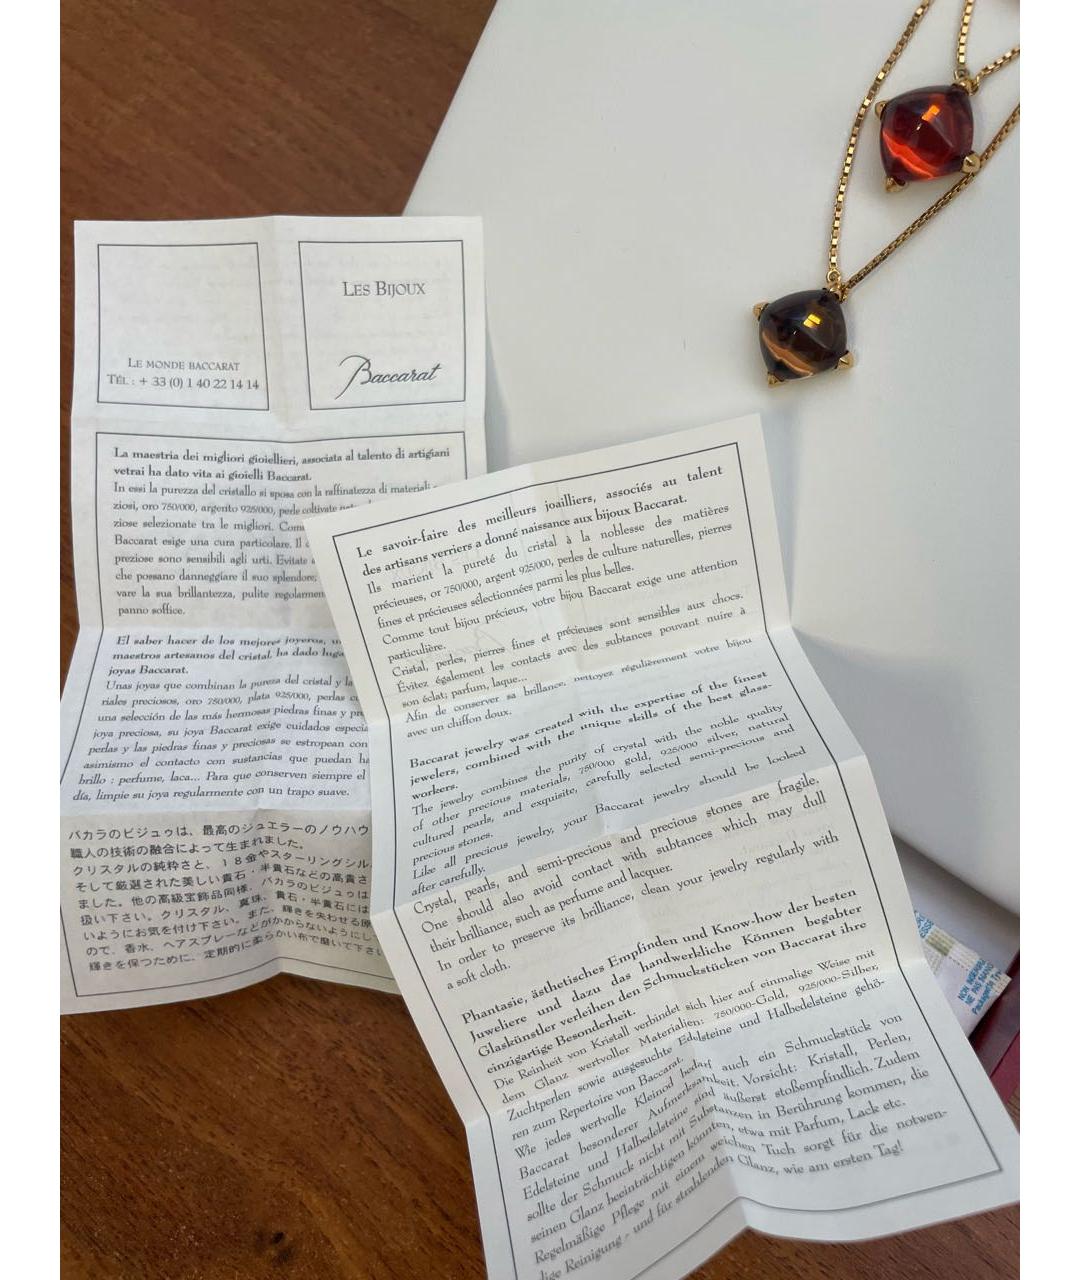 LE MONDE BACCARAT
TÉL : + 33 (0) 1 40 22 14 14
LES BIJOUX
Baccarat
La maestria dei migliori gioiellieri, associata al talento di artigiani
vetrai ha dato vita ai gioielli Baccarat.
In essi la purezza del cristallo si sposa con la raffinatezza di materiali
ziosi, oro 750/000, argento 925/000, perle coltivate
ziose selezionate tra le migliori. Com
Baccarat esige una cura particolare. Il c
preziose sono sensibili agli urti. Evitate
che possano danneggiare il suo splendore;
vare la sua brillantezza, pulite regolarmen
panno soffice.
El saber hacer de los mejores joyeros,
maestros artesanos del cristal, ha dado luga
joyas Baccarat.
Unas joyas que combinan la pureza del cristal y la
riales preciosos, oro 750/000, plata 925/000, perlas
una selección de las más hermosas piedras finas y pre
joya preciosa, su joya Baccarat exige cuidados especia
perlas y las piedras finas y preciosas se estropean con
asimismo el contacto con sustancias que puedan ha
brillo : perfume, laca... Para que conserven siempre el
día, limpie su joya regularmente con un trapo suave.
バカラのビジュウは、最高のジュエラーのノウハウ
職人の技術の融合によって生まれました。
クリスタルの純粋さと、18金やスターリングシル
そして厳選された美しい貴石・半貴石などの高貴さ
ました。他の高級宝飾品同様、バカラのビジュウは
扱い下さい。クリスタル、真珠、貴石・半貴石には
いようにお気を付け下さい。また、輝きを失わせる原
ので、香水、ヘアスプレーなどがかからないようにして
輝きを保つために、定期的に柔らかい布で磨いて下さ
Le savoir-faire des meilleurs joailliers, associés au talent
des artisans verriers a donné naissance aux bijoux Baccarat.
Ils marient la pureté du cristal à la noblesse des matières
précieuses, or 750/000, argent 925/000, perles de culture naturelles, pierres
fines et précieuses sélectionnées parmi les plus belles.
Comme tout bijou précieux, votre bijou Baccarat exige une attention
particulière.
Cristal, perles, pierres fines et précieuses sont sensibles aux chocs.
Évitez également les contacts avec des subtances pouvant nuire à
son éclat; parfum, laque...
Afin de conserver sa brillance, nettoyez régulièrement votre bijou
avec un chiffon doux.
Baccarat jewelry was created with the expertise of the finest
jewelers, combined with the unique skills of the best glass-
workers.
The jewelry combines the purity of crystal with the noble quality
of other precious materials, 750/000 gold, 925/000 silver, natural
cultured pearls, and exquisite, carefully selected semi-precious and
precious stones.
Like all precious jewelry, your Baccarat jewelry should be looked
after carefully.
Crystal, pearls, and semi-precious and precious stones are fragile.
One should also avoid contact with subtances which may dull
their brilliance, such as perfume and lacquer.
In order to preserve its brilliance, clean your jewelry regularly with
a soft cloth.
Phantasie, ästhetisches Empfinden und Know-how der besten
Juweliere und dazu das handwerkliche Können begabter
Glaskünstler verleihen den Schmuckstücken von Baccarat ihre
einzigartige Besonderheit.
Die Reinheit von Kristall verbindet sich hier auf einmalige Weise mit
dem Glanz wertvoller Materialien: 750/000-Gold, 925/000-Silber,
Zuchtperlen sowie ausgesuchte Edelsteine und Halbedelsteine gehö-
ren zum Repertoire von Baccarat.
Wie jedes wertvolle Kleinod bedarf auch ein Schmuckstück von
Baccarat besonderer Aufmerksamkeit. Vorsicht: Kristall, Perlen,
Edelsteine und Halbedelsteine sind äußerst stoßempfindlich. Zudem
sollte der Schmuck nicht mit Substanzen in Berührung kommen, die
seinen Glanz beeinträchtigen könnten, etwa mit Parfum, Lack etc.
Regelmäßige Pflege mit einem weichen Tuch sorgt für die notwen-
dige Reinigung - und für strahlenden Glanz, wie am ersten Tag!
NON INGERIRE
NE PAS MANG